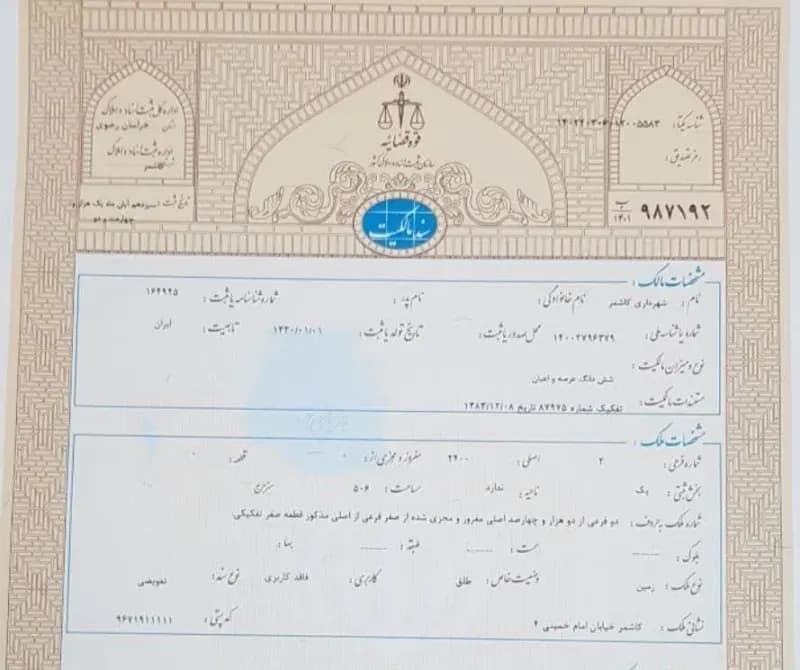 قوه قضائیه
سازمان ثبت اسناد و املاک کشور
سند مالکیت
شناسه یکتا:
رمز تصدیق:
۹۸۷۱۹۲ ب ۱۴۰۱
اداره کل ثبت اسناد و املاک
استان خراسان رضوی
اداره ثبت اسناد و املاک
کاشمر
تاریخ ثبت: سیزدهم آبان ماه یک هزار و
چهارصد و دو
مشخصات مالک:
نام: شهرداری کاشمر نام خانوادگی: نام پدر: شماره شناسنامه یا ثبت: ۱۶۴۹۴۵
شماره یا شناسه ملی: ۱۴۰۰۲۷۹۶۳۷۹ محل صدور یا ثبت: تاریخ تولد یا ثبت: ۱۳۳۰/۰۱/۰۱ تابعیت: ایران
نوع و میزان مالکیت:
شش دانگ عرصه و اعیان
مستندات مالکیت: تفکیک شماره ۸۷۹۷۵ تاریخ ۱۳۸۳/۱۲/۰۸
مشخصات ملک:
شماره فرعی: ۲ اصلی: ۲۴۰۰ مفروز و مجزی از: ۰ قطعه: ۰
بخش ثبتی: یک ناحیه: ندارد مساحت: ۵۰۶ مترمربع
شماره ملک به حروف: دو فرعی از دو هزار و چهارصد اصلی مفروز و مجزی شده از صفر فرعی از اصلی مذکور قطعه صفر تفکیکی.
بلوک: -------- سمت: -------- طبقه: -------- بهاء:
نوع ملک: زمین وضعیت خاص: طلق کاربری: فاقد کاربری نوع سند: تعویضی
نشانی ملک: کاشمر خیابان امام خمینی ۴ کدپستی: ۹۶۷۱۹۱۱۱۱۱